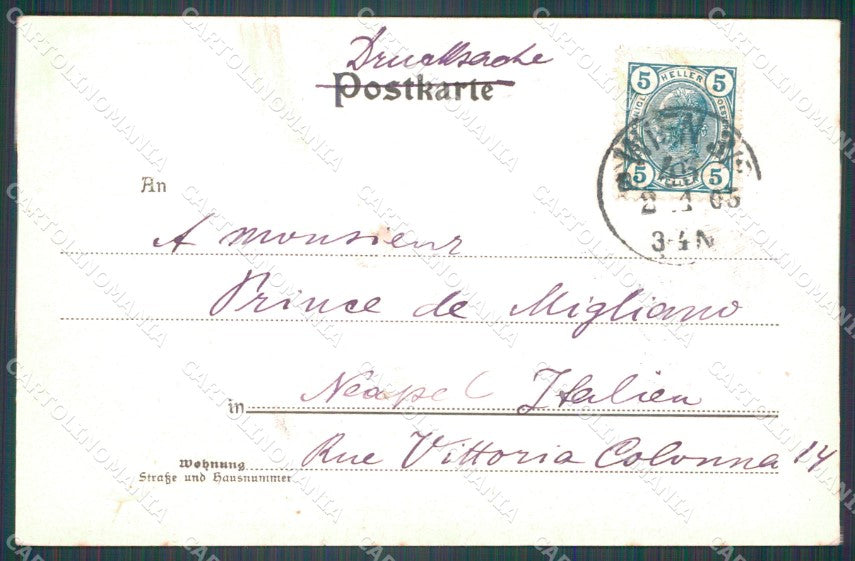 Drucksache
Postkarte
5 HELLER 5
5 HELLER 5
WIEN
2 1 05
3-4N
An
A monsieur
Prince de Migliano
in Neapel Italien
Wohnung Rue Vittoria Colonna 14
Straße und Hausnummer
CARTOLINOMANIA